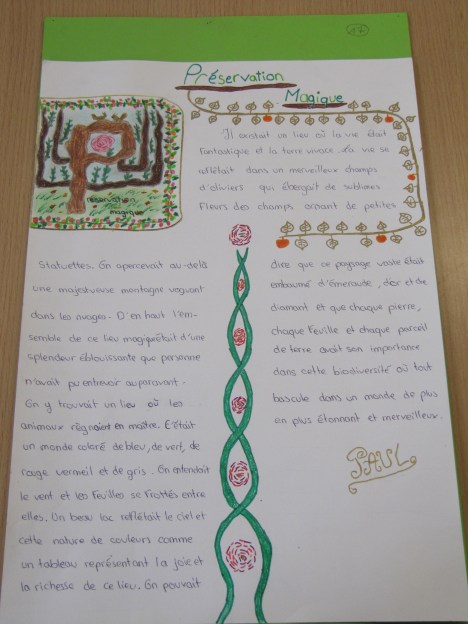 17
Préservation
Magique
Préservation
magique
Il existait un lieu où la vie était
fantastique et la terre vivace. La vie se
reflétait dans un merveilleux champs
d'oliviers qui ébergait de sublimes
fleurs des champs ornant de petites
statuettes. On apercevait au-delà
une majestueuse montagne voguant
dans les nuages. D'en haut l'em-
semble de ce lieu magiquêtait d'une
splendeur éblouissante que personne
n'avait pu entrevoir auparavant.
On y trouvait un lieu où les
animaux règnaient en maître. C'était
un monde coloré de bleu, de vert, de
rouge vermeil et de gris. On entendait
le vent et les feuilles se frottés entre
elles. Un beau lac reflétait le ciel et
cette nature de couleurs comme
un tableau représentant la joie et
la richesse de ce lieu. On pouvait
dire que ce paysage vaste était
embaumé d'émeraude, d'or et de
diamant et que chaque pierre,
chaque feuille et chaque parcell
de terre avait son importance
dans cette biodiversité où tout
bascule dans un monde de plus
en plus étonnant et merveilleux.
PAUL